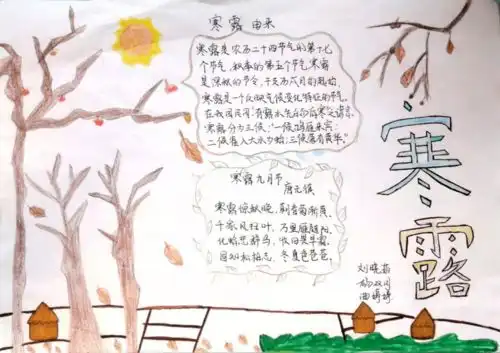 寒露 由来
寒露是农历二十四节气的第十七
个节气,秋季的第五个节气寒露
是深秋的节令,干支历戌月的起始,
寒露是一个反映气候变化特征的节气。
在我国民间有露水先白而后寒之谚言,
寒露分为三候:"一候鸿雁来宾,
二候雀入大水为蛤;三候菊有黄华。"
寒露九月节
唐元稹
寒露惊秋晚,朝看菊渐黄。
千家风扫叶,万里雁随阳。
化蛤悲群鸟,收田畏早霜。
因知松柏志,冬夏色苍苍。
寒露
刘晓